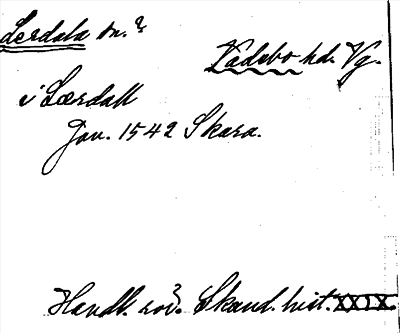 Lerdala sn.?
Vadsbo hd. Vg.
i Lærdall
Jan. 1542 Skara.
Handl. rör. Skand. hist. XXIX.